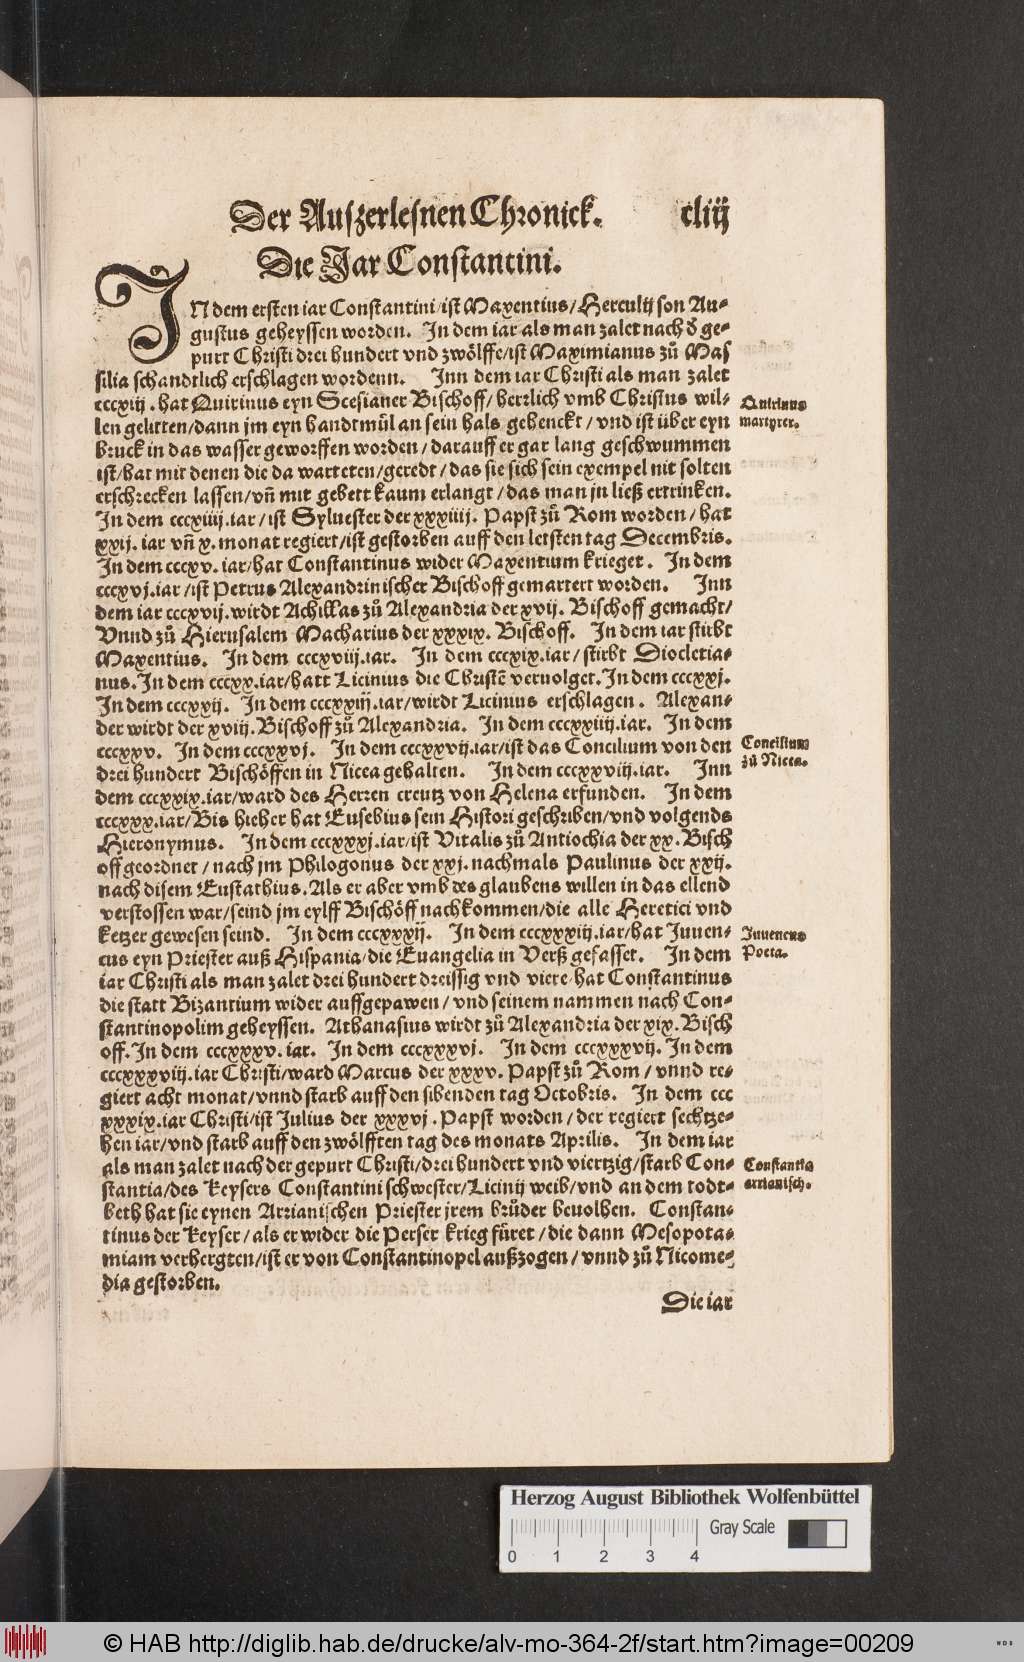 Der Auszerlesnen Chronick. cliij
Die Jar Constantini.
IN dem ersten iar Constantini/ist Maxentius/Herculij son Au-
gustus geheyssen worden. In dem iar als man zalet nach ð ge-
purt Christi drei hundert vnd zwölffe/ist Maximianus zů Mas
silia schandtlich erschlagen wordenn. Inn dem iar Christi als man zalet
cccxiij. hat Quirinus eyn Scesianer Bischoff/herrlich vmb Christus wil-
len gelitten/dann jm eyn handtmůl an sein hals gehenckt/vnd ist über eyn
bruck in das wasser geworffen worden/darauff er gar lang geschwummen
ist/hat mit denen die da warteten/geredt/das sie sich sein exempel nit solten
erschrecken lassen/vñ mit gebett kaum erlangt/das man jn ließ ertrinken.
In dem cccxiiij.iar/ist Syluester der xxxiiij. Papst zů Rom worden/hat
xxij. iar vñ x. monat regiert/ist gestorben auff den letsten tag Decembris.
In dem cccxv. iar/hat Constantinus wider Maxentium krieget. In dem
cccxvj.iar/ist Petrus Alexandrinischer Bischoff gemartert worden. Inn
dem iar cccxvij.wirdt Achillas zů Alexandria der xvij. Bischoff gemacht/
Vnnd zů Hierusalem Macharius der xxxix. Bischoff. In dem iar stirbt
Maxentius. In dem cccxviij.iar. In dem cccxix.iar/stirbt Diocletia-
nus. In dem cccxx.iar/hatt Licinius die Christẽ veruolget. In dem cccxxj.
In dem cccxxij. In dem cccxxiij.iar/wirdt Licinius erschlagen. Alexan-
der wirdt der xviij. Bischoff zů Alexandria. In dem cccxxiiij.iar. In dem
cccxxv. In dem cccxxvj. In dem cccxxvij.iar/ist das Concilium von den
drei hundert Bischöffen in Nicea gehalten. In dem cccxxviij.iar. Inn
dem cccxxix.iar/ward des Herren creutz von Helena erfunden. In dem
cccxxx.iar/Bis hieher hat Eusebius sein Histori geschriben/vnd volgends
Hieronymus. In dem cccxxxj.iar/ist Vitalis zů Antiochia der xx. Bisch
off geordnet/nach jm Philogonus der xxj. nachmals Paulinus der xxij.
nach disem Eustathius. Als er aber vmb des glaubens willen in das ellend
verstossen war/seind jm eylff Bischöff nachkommen/die alle Heretici vnd
ketzer gewesen seind. In dem cccxxxij. In dem cccxxxiij.iar/hat Juuen-
cus eyn Priester auß Hispania/die Euangelia in Verß gefasset. In dem
iar Christi als man zalet drei hundert dreissig vnd viere/hat Constantinus
die statt Bizantium wider auffgepawen/vnd seinem nammen nach Con-
stantinopolim geheyssen. Athanasius wirdt zů Alexandria der xix. Bisch
off. In dem cccxxxv. iar. In dem cccxxxvj. In dem cccxxxvij. In dem
cccxxxviij.iar Christi/ward Marcus der xxxv. Papst zů Rom/vnnd re-
giert acht monat/vnnd starb auff den sibenden tag Octobris. In dem ccc
xxxix.iar Christi/ist Julius der xxxvj. Papst worden/der regiert sechtze-
hen iar/vnd starb auff den zwölfften tag des monats Aprilis. In dem iar
als man zalet nach der gepurt Christi/drei hundert vnd viertzig/starb Con-
stantia/des Keysers Constantini schwester/Licinij weib/vnd an dem todt-
beth hat sie eynen Arrianischen Priester jrem brůder beuolhen. Constan-
tinus der Keyser/als er wider die Perser krieg füret/die dann Mesopota-
miam verhergten/ist er von Constantinopel außzogen/vnnd zů Nicome-
dia gestorben.
Die iar
Quirinus
martyrer.
Concilium
zů Nicea.
Juuencus
Poeta.
Constantia
arrianisch.
Herzog August Bibliothek Wolfenbüttel
Gray Scale
0 1 2 3 4
© HAB http://diglib.hab.de/drucke/alv-mo-364-2f/start.htm?image=00209